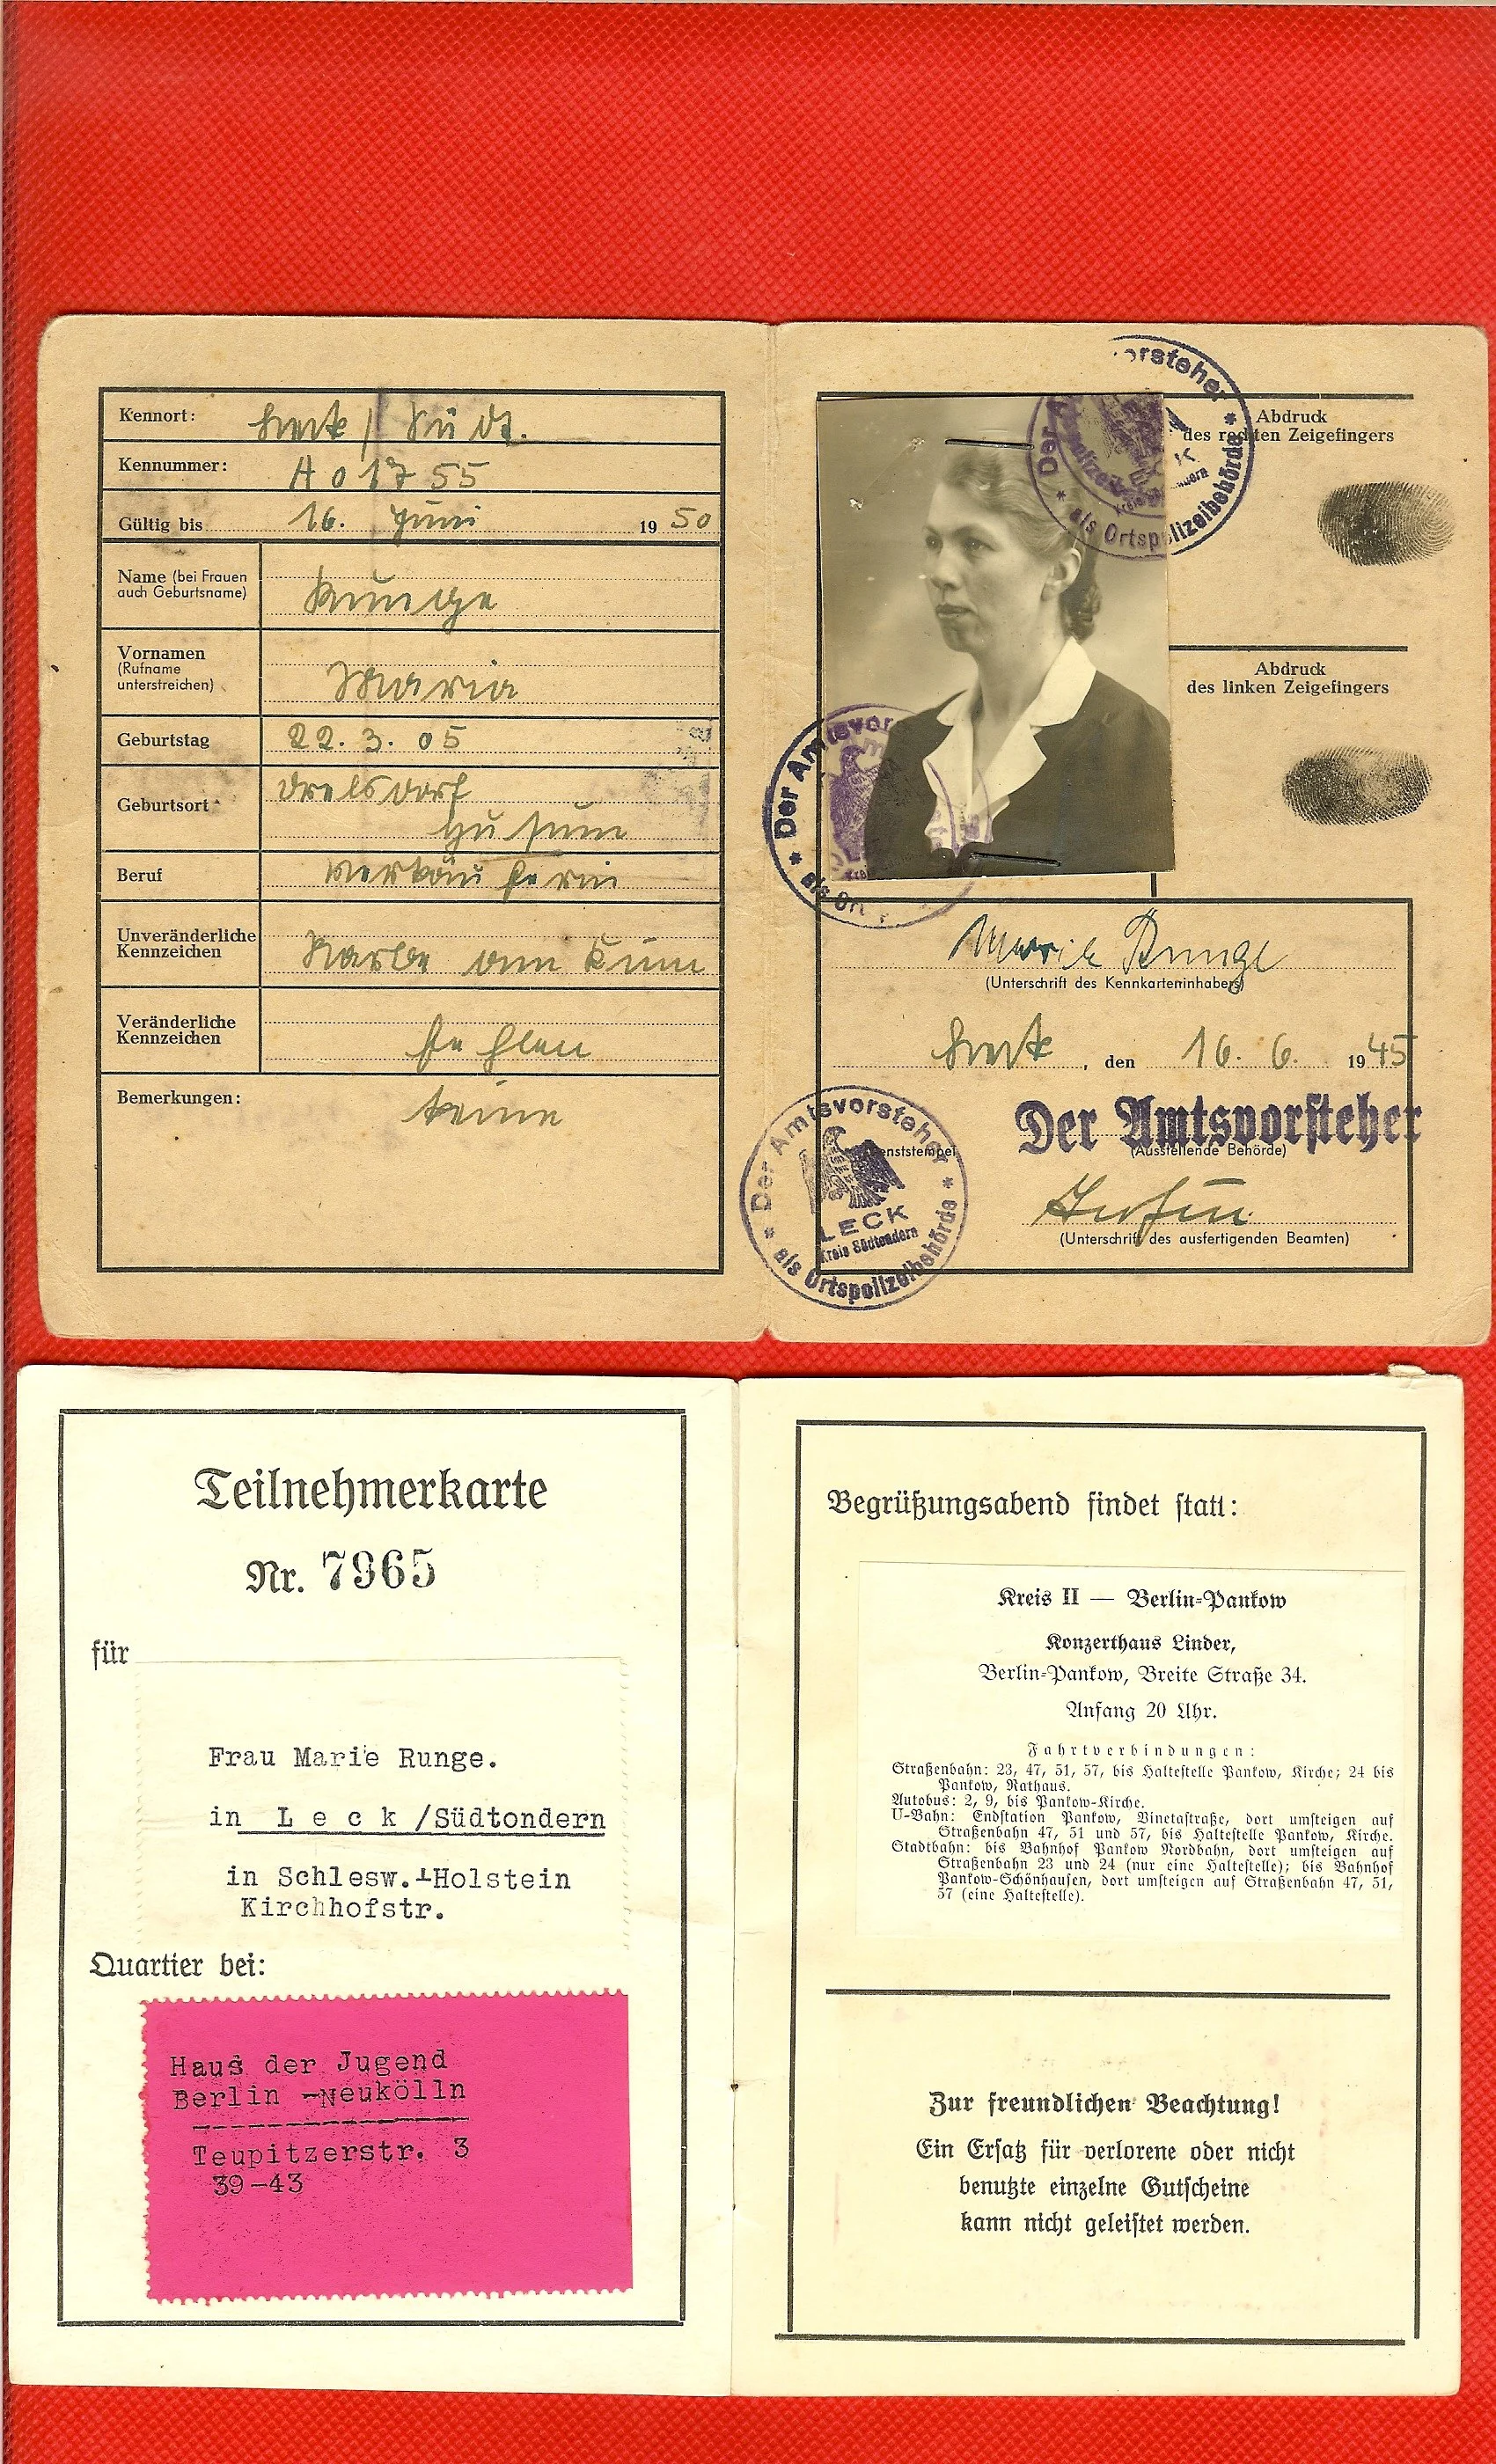 Kennort: Leck / Südt.
Kennummer: A 01755
Gültig bis 16. Juni 1950
Name (bei Frauen
auch Geburtsname) Runge
Vornamen
(Rufname
unterstreichen) Maria
Geburtstag 22.3.05
Geburtsort Drelsdorf
Husum
Beruf Verkäuferin
Unveränderliche
Kennzeichen Narbe am Kinn
Veränderliche
Kennzeichen fehlen
Bemerkungen: keine
Der Amtsvorsteher
als Ortspolizeibehörde
Abdruck
des rechten Zeigefingers
Abdruck
des linken Zeigefingers
Der Amtsvor
als Ort
Marie Runge
(Unterschrift des Kennkarteninhabers)
Leck, den 16.6. 1945
Der Amtsvorsteher
(Ausstellende Behörde)
Dienststempel
Der Amtsvorsteher
LECK
Kreis Südtondern
als Ortspolizeibehörde
(Unterschrift des ausfertigenden Beamten)
Teilnehmerkarte
Nr. 7965
für
Frau Marie Runge.
in L e c k /Südtondern
in Schlesw.-Holstein
Kirchhofstr.
Quartier bei:
Haus der Jugend
Berlin -Neukölln
Teupitzerstr. 3
39-43
Begrüßungsabend findet statt:
Kreis II — Berlin-Pankow
Konzerthaus Linder,
Berlin-Pankow, Breite Straße 34.
Anfang 20 Uhr.
Fahrtverbindungen:
Straßenbahn: 23, 47, 51, 57, bis Haltestelle Pankow, Kirche; 24 bis
Pankow, Rathaus.
Autobus: 2, 9, bis Pankow-Kirche.
U-Bahn: Endstation Pankow, Vinetastraße, dort umsteigen auf
Straßenbahn 47, 51 und 57, bis Haltestelle Pankow, Kirche.
Stadtbahn: bis Bahnhof Pankow Nordbahn, dort umsteigen auf
Straßenbahn 23 und 24 (nur eine Haltestelle); bis Bahnhof
Pankow-Schönhausen, dort umsteigen auf Straßenbahn 47, 51,
57 (eine Haltestelle).
Zur freundlichen Beachtung!
Ein Ersatz für verlorene oder nicht
benutzte einzelne Gutscheine
kann nicht geleistet werden.